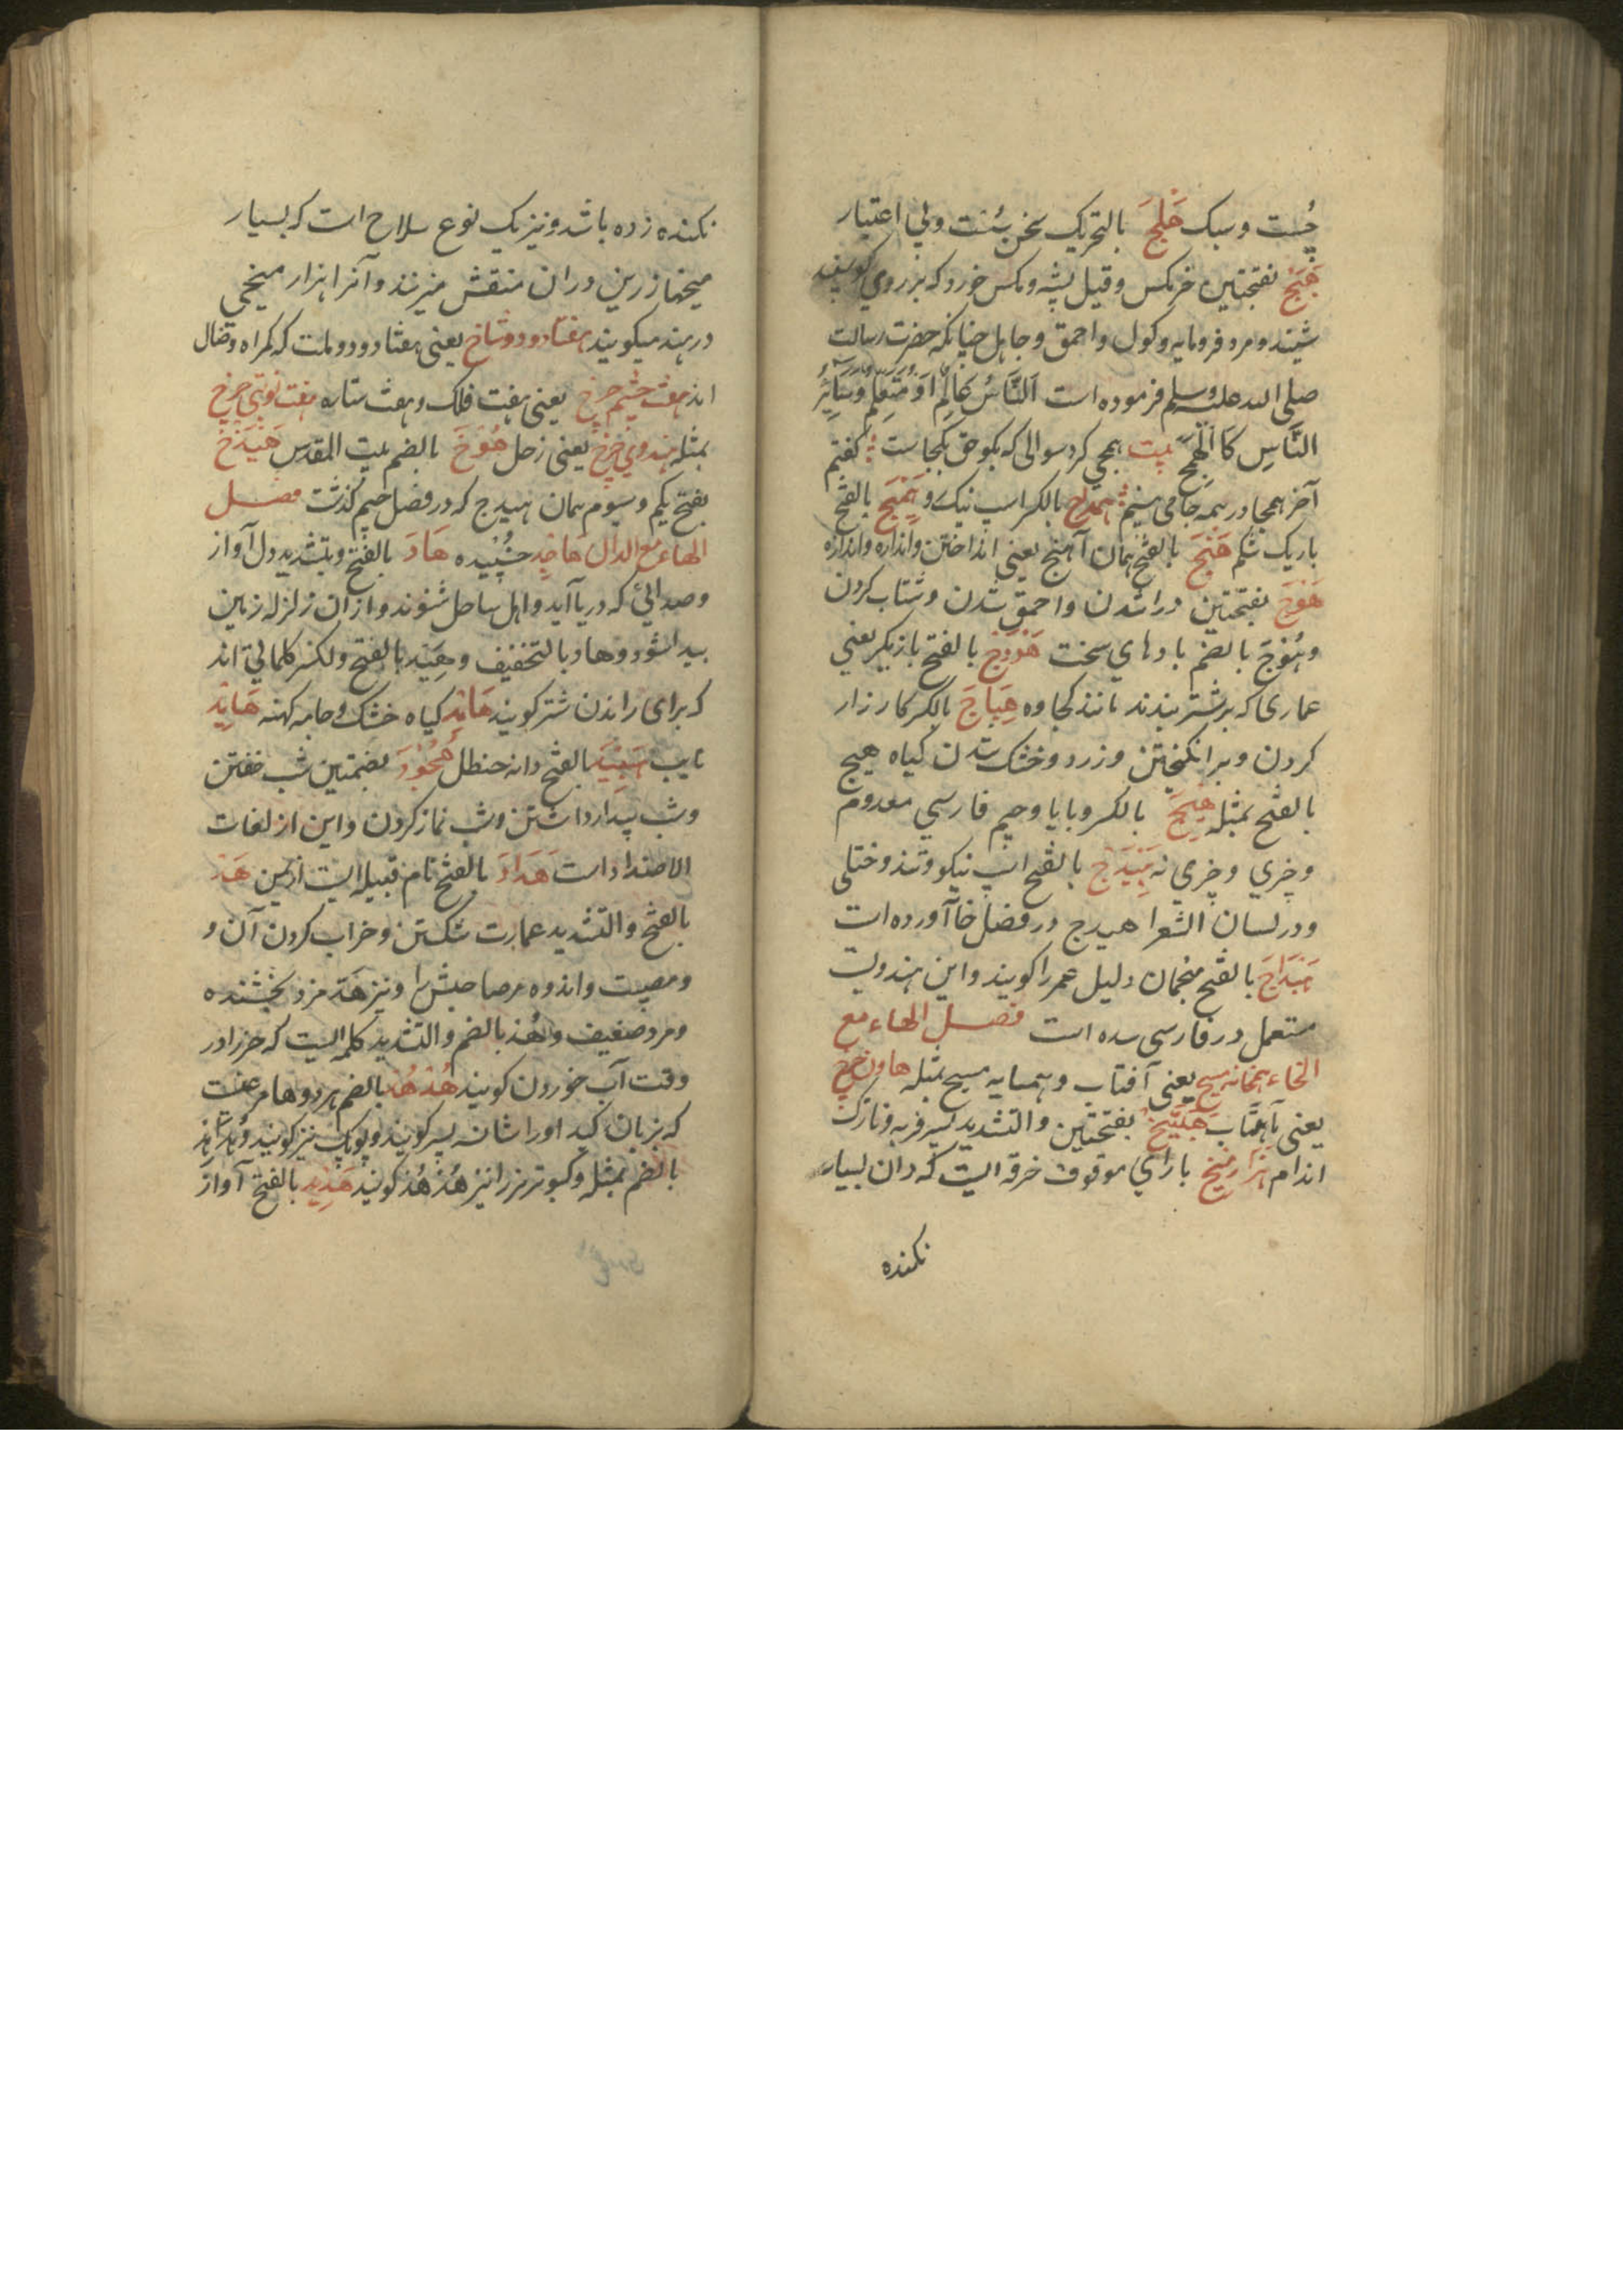 چُست و سبک هَلَجَ بالتحریک سخن سُست و بی اعتبار
هَمَجَ بفتحتین خرمکس و قیل پشه و مکس خورد که بر روی کوسپند
شیند و مرد فرومایه و کول و احمق و جاهل چنانکه حضرت رسالت
صلی الله علیه وسلم فرموده است اَلنَّاسُ عَالِم اَو مُتَعَلِّم وَسَایِرُ
النَّاسِ کَالْهَمَجِ بیت همجی کرد سوالی که بکو حق بکجاست کفتم
آخر همجا در همه جا می بینم هملاج بالکسر اسپ نیک رو هَمَج بالفتح
باریک شکم هَنجَ بالفتح همان آهنج یعنی انداختن و اندازه
هَوَجَ بفتحتین دراز شدن و احمق شدن و شتاب کردن
و هُوْجَ بالضم بادهای سخت هَوْدَجَ بالفتح بازیکر یعنی
عماری که بر شتر بندند مانند کجاوه هِیَاجَ بالکسر کارزار
کردن و برانکیختن و زرد و خشک شدن کیاه هیج
بالفتح بمثله هِیچَ بالکسر و با یا و جیم فارسی معدوم
و چیزی و چیزی نه هَیْدَج بالفتح اسپ نیکو و تند و ختلی
و در لسان الشعرا هیدج در فصل خا آورده است
هَیْلَاجَ بالفتح منجمان دلیل عمر را کویند و این هندویست
مستعمل در فارسی شده است فصل الهاء مع
الخاء همخانه مسیح یعنی آفتاب و همسایه مسیح بمثله هاون چرخ
یعنی ماهتاب هَبَیَّخْ بفتحتین والتشدید پسر فربه و نازک
اندام هزار میخ بازای موقوف خرقه ایست که دران بسیار
نکنده
نکنده زده باشد و نیز یک نوع سلاح است که بسیار
میخها زرین دران منقش میزنند و آنرا هزار میخی
در هند میکویند هفتاد و دو شاخ یعنی هفتاد و دو ملت که کمراه و ضال
اند هفت چشم چرخ یعنی هفت فلک و هفت ستاره هفت نوبتی چرخ
بمثله هندوی چرخ یعنی زحل هُوخَ بالضم بیت المقدس هَیْدَخْ
بفتح یکم و سیوم همان هیدج که در فصل جیم کذشت فصل
الهاء مع الدال هاخید چسپیده هَادَ بالفتح و بتشدید دال آواز
و صدائی که دریا آید و اهل ساحل شنوند و ازان زلزله زمین
پیدا شود و هاد بالتخفیف و هِیَند بالفتح ولکسر کلماتی اند
که برای راندن شتر کویند هَامِد کیاه خشک و جامه کهنه هَایِد
تایب هَبِیْد بالفتح دانه حنظل هُجُوْدَ بضمتین شب خفتن
و شب بیدار داشتن و شب نماز کردن و این از لغات
الاضداد است هَدَادَ بالفتح نام قبیله ایست از یمن هَدّ
بالفتح والتشدید عمارت شکستن و خراب کردن آن و
و مصیبت و اندوه مر صاحبش را و نیز هَدّ مرد بخشنده
و مرد ضعیف و هُد بالضم والتشدید کلمه ایست که خر را در
وقت آب خوردن کویند هُدْهُد بالضم هردو ها مرغیست
که بزبان کید او را شانه سر کویند و پوپک نیز کویند و هداهد
بالضم بمثله و کبوتر نر را نیز هُدْهُد کویند هَدِید بالفتح آواز